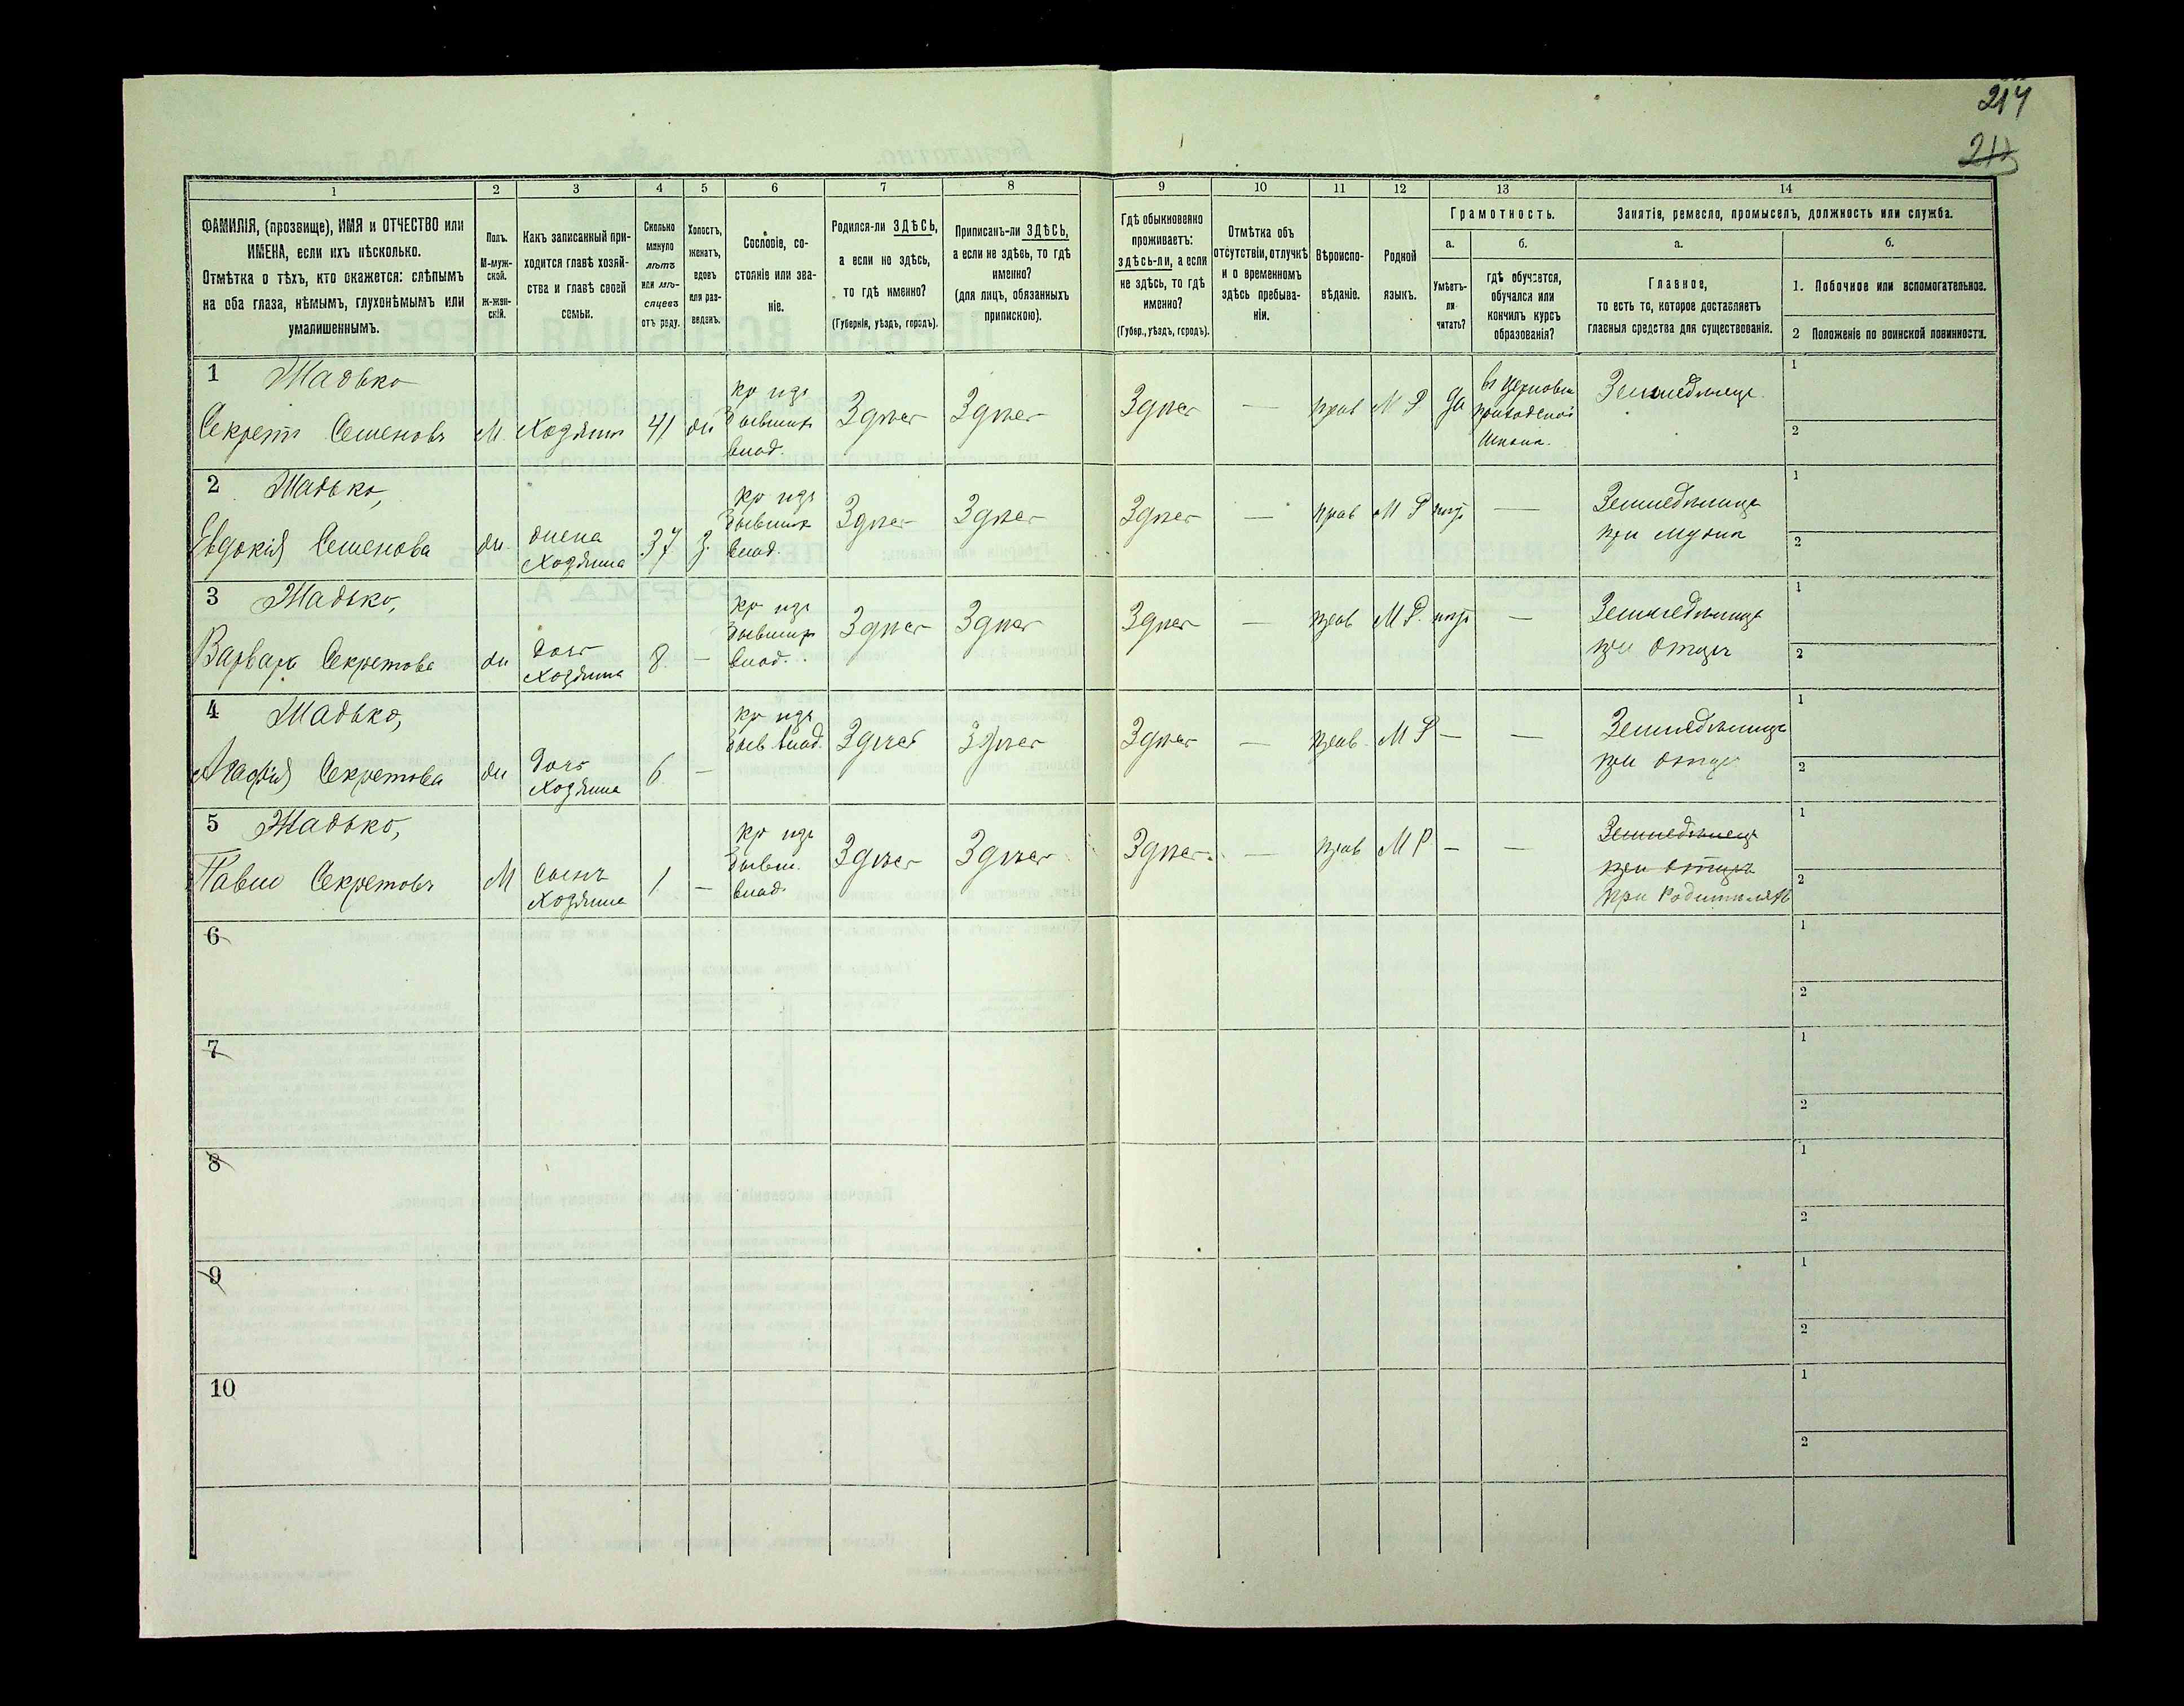 214
213
1
2
3
4
5
6
7
8
9
10
11
12
13
14
ФАМИЛІЯ, (прозвище), ИМЯ и ОТЧЕСТВО или
ИМЕНА, если ихъ нѣсколько.
Отмѣтка о тѣхъ, кто окажется: слѣпымъ
на оба глаза, нѣмымъ, глухонѣмымъ или
умалишеннымъ.
Полъ.
М-муж-
ской.
Ж-жен-
скій.
Какъ записанный при-
ходится главѣ хозяй-
ства и главѣ своей
семьи.
Сколько
минуло
лѣтъ
или мѣ-
сяцевъ
отъ роду.
Холостъ,
женатъ,
вдовъ
или раз-
веденъ.
Сословіе, со-
стояніе или зва-
ніе.
Родился-ли ЗДѢСЬ,
а если не здѣсь,
то гдѣ именно?
(Губернія, уѣздъ, городъ).
Приписанъ-ли ЗДѢСЬ,
а если не здѣсь, то гдѣ
именно?
(для лицъ, обязанныхъ
припискою).
Гдѣ обыкновенно
проживаетъ:
здѣсь-ли, а если
не здѣсь, то гдѣ
именно?
(Губер., уѣздъ, городъ).
Отмѣтка объ
отсутствіи, отлучкѣ
и о временномъ
здѣсь пребыва-
ніи.
Вѣроиспо-
вѣданіе.
Родной
языкъ.
Грамотность.
а.
Умѣетъ-
ли
читать?
б.
гдѣ обучается,
обучался или
кончилъ курсъ
образованія?
Занятіе, ремесло, промыселъ, должность или служба.
а.
Главное,
то есть то, которое доставляетъ
главныя средства для существованія.
б.
1. Побочное или вспомогательное.
2 Положеніе по воинской повинности.
1 Жадько
Секретъ Семеновъ
М Хозяинъ 41 ж
кр изъ
бывших
влад.
Здѣсь Здѣсь Здѣсь — прав М Р да
въ церковн
приходской
школѣ.
Земледѣлецъ
1
2
2 Жадько,
Евдокія Семенова
ж
жена
Хозяина
37 З.
кр изъ
бывших
влад.
Здѣсь Здѣсь Здѣсь — прав М Р нѣт —
Земледѣлица
при мужѣ
1
2
3 Жадько,
Варвара Секретова
ж
дочь
Хозяина
8 —
кр изъ
бывших
влад.
Здѣсь Здѣсь Здѣсь — прав М Р. нѣт —
Земледѣлица
при отцѣ
1
2
4 Жадько,
Агафія Секретова
ж
дочь
Хозяина
6 —
кр изъ
быв влад.
Здѣсь Здѣсь Здѣсь — прав М Р — —
Земледѣлица
при отцѣ
1
2
5 Жадько,
Павел Секретовъ
М
сынъ
Хозяина
1 —
кр изъ
бывш.
влад.
Здѣсь Здѣсь Здѣсь — прав М Р — —
Земледѣлецъ
при отцѣ
при родителяхъ
1
2
6
1
2
7
1
2
8
1
2
9
1
2
10
1
2